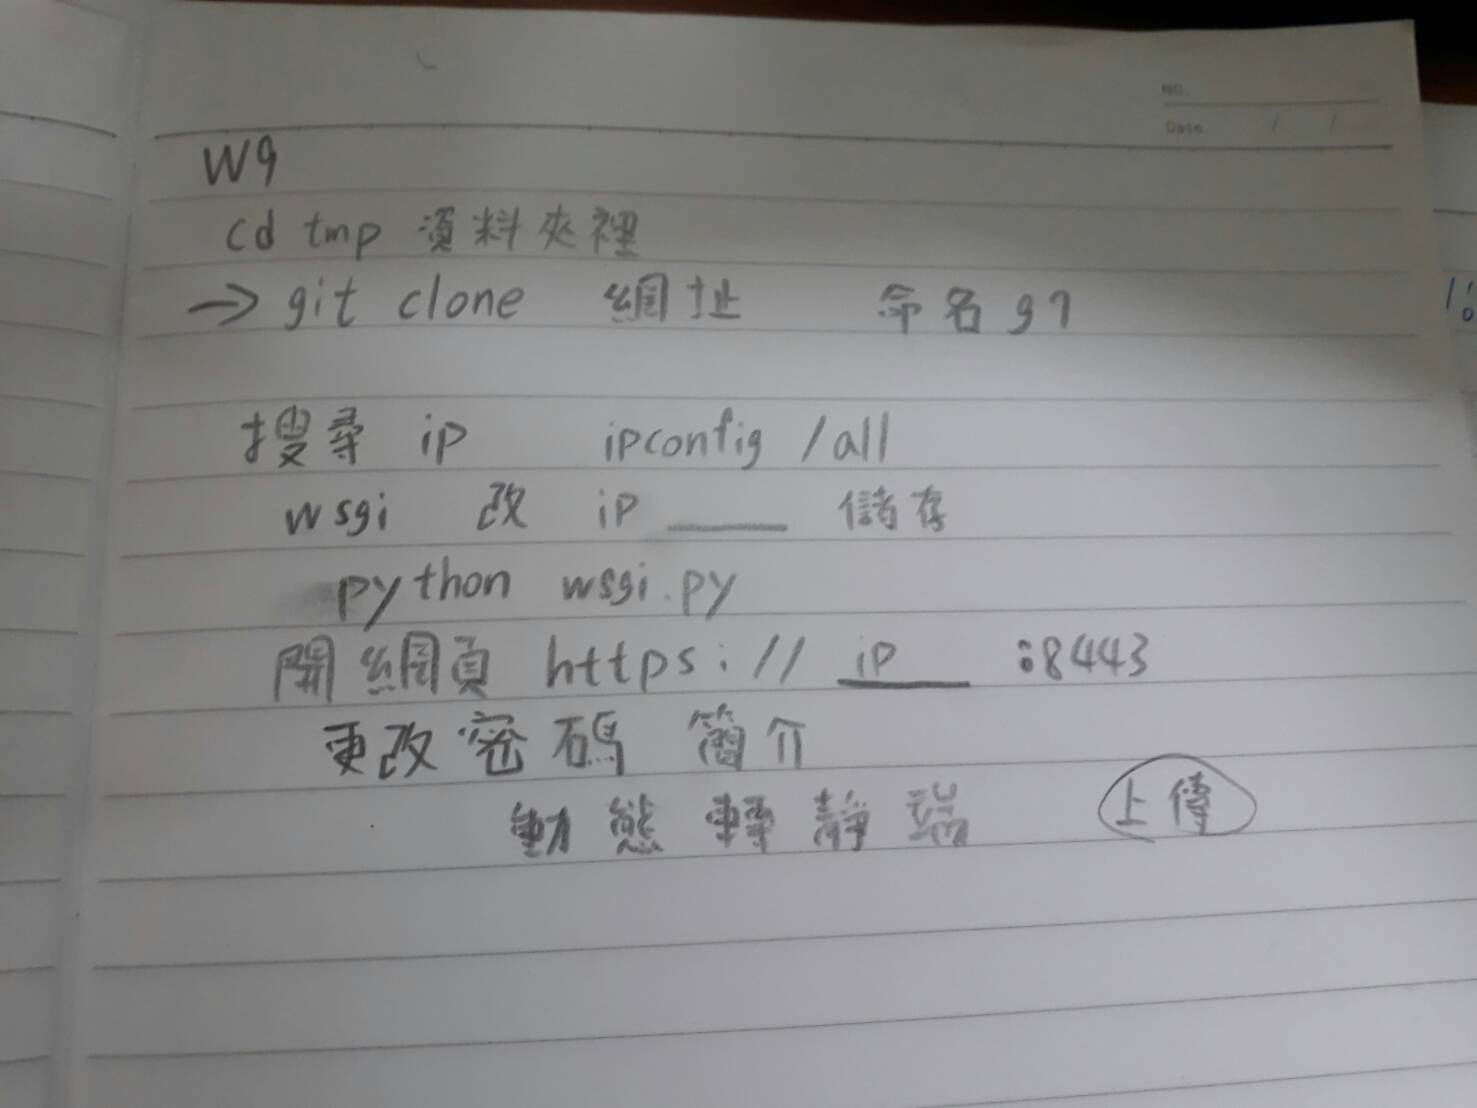 NO.
Date / /
W9
cd tmp 資料夾裡
→ git clone 網址 命名 g7
搜尋 ip ipconfig /all
wsgi 改 ip ____ 儲存
python wsgi.py
開網頁 https:// ip :8443
更改密碼 簡介
動態轉靜端 上傳